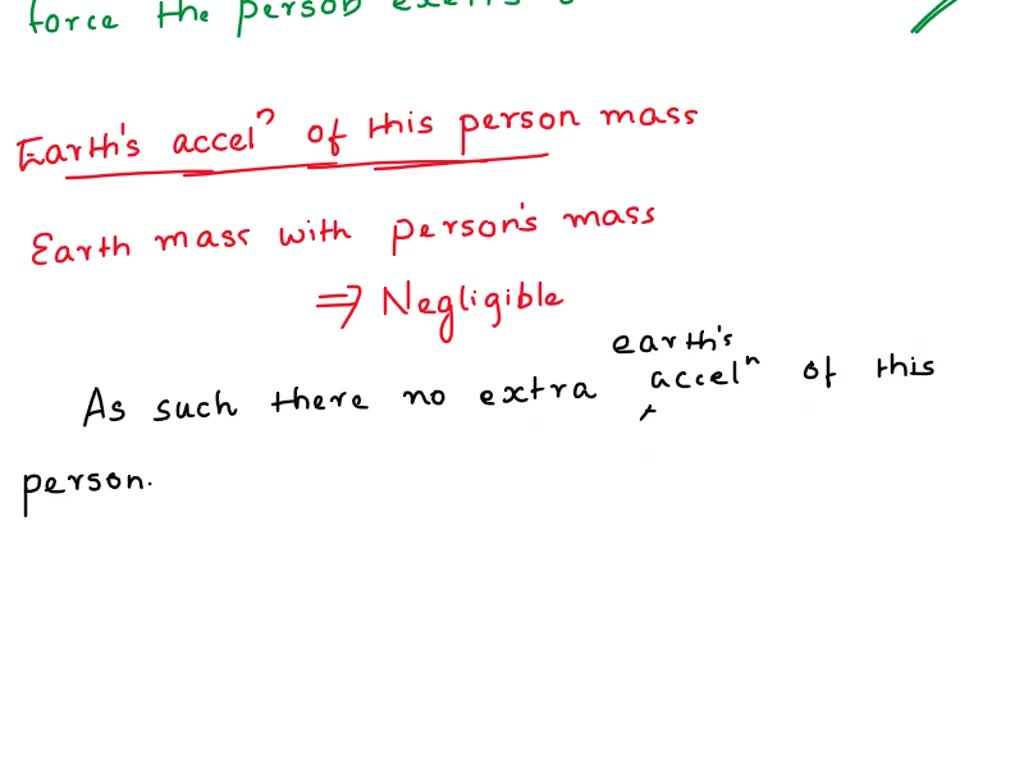 force the person
Earth's accelⁿ of this person mass
Earth mass with person's mass
⇒ Negligible
earth's
As such there no extra accelⁿ of this
person.